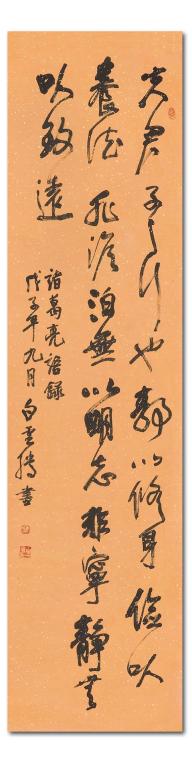 夫君子之行也静以修身俭以
养德非澹泊無以明志非寧静無
以致遠
諸葛亮語録
戊子年九月白雲腾書